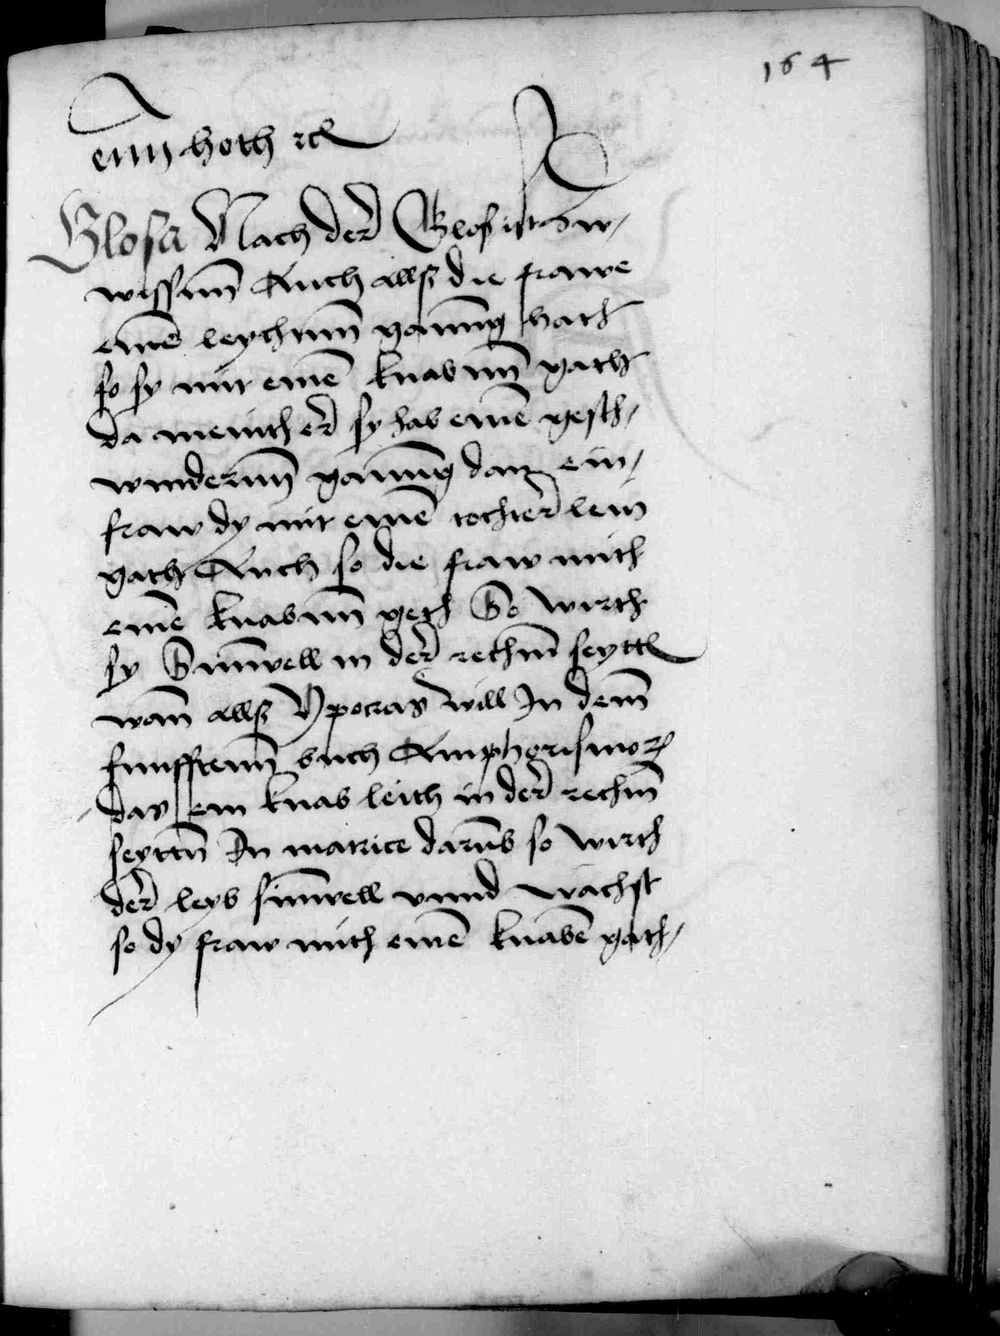 164
ein hoth etc
Glosa Nach der Glos ist zw
wissenn Auch allß die frawe
eine leychtenn ganng hath
so sy mit eine knabenn gath
da meinth er sy hab eine gesch
winderenn ganng dan ein
fraw dy mit eine tochterlein
gath Auch so die fraw mith
eine knabenn geth So wirth
sy Sinwell in der rechtn seyttn
wan allß Ypocras will In dem
funfftenn buch Amphorismorum
das ein knab leith in der rechtn
seyttn In matrice darumb so wirth
der leyb sinwell vnnd wachst
so dy fraw mith eine knabe gath